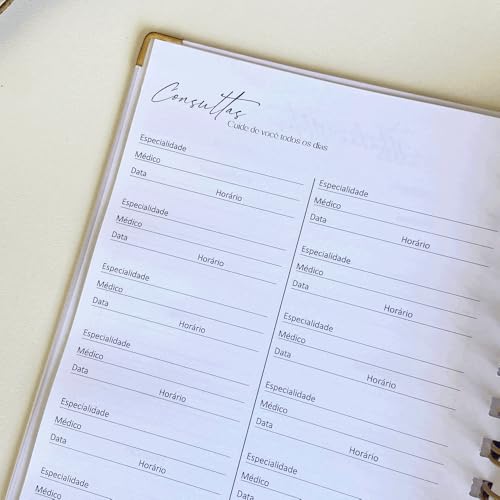 Consultas
Cuide de você todos os dias
Especialidade
Médico
Data Horário
Especialidade
Médico
Data Horário
Especialidade
Médico
Data Horário
Especialidade
Médico
Data Horário
Especialidade
Médico
Data Horário
Especialidade
Médico
Especialidade
Médico
Data Horário
Especialidade
Médico
Data Horário
Especialidade
Médico
Data Horário
Especialidade
Médico
Data Horário
Especialidade
Médico
Data